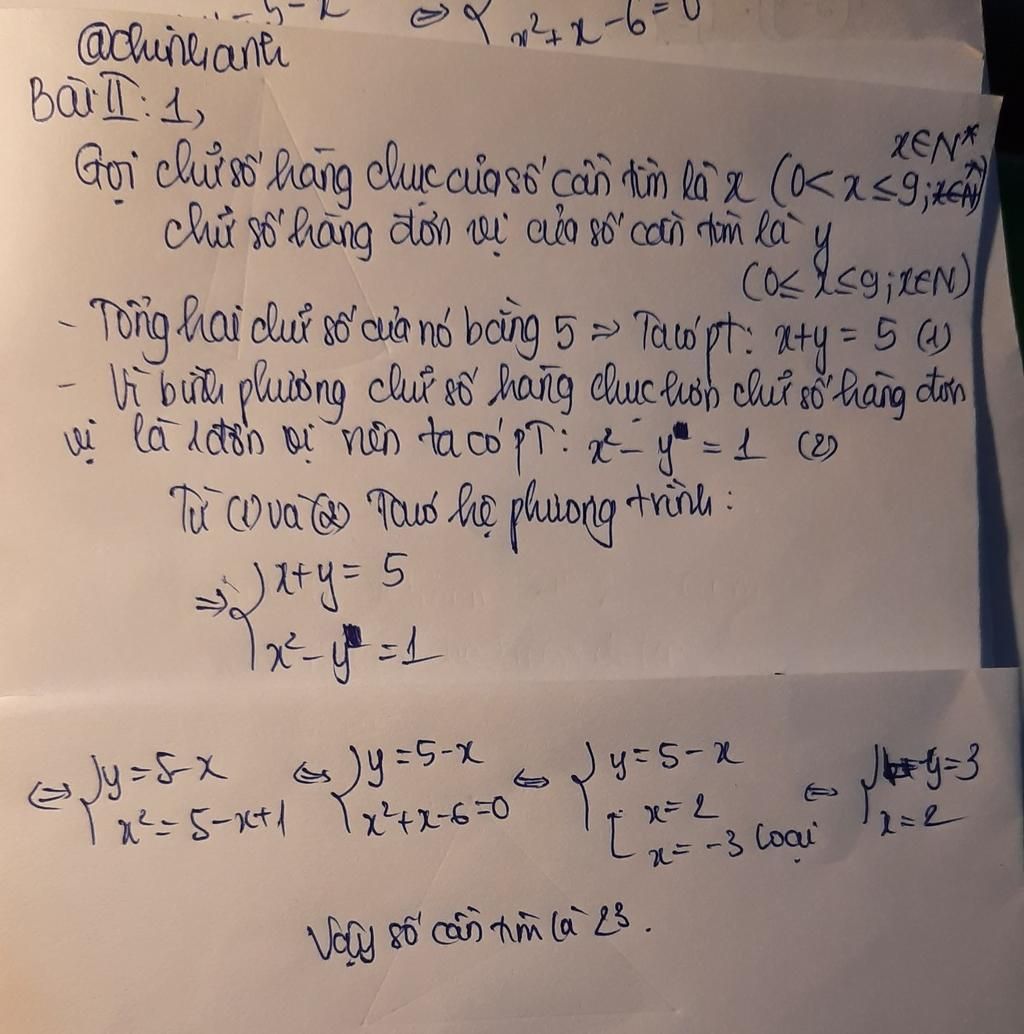 x²+x-6=0
@chinhanh
Bài II: 1,
x∈N*
Gọi chữ số hàng chục của số cần tìm là x (0<x≤9;
chữ số hàng đơn vị của số cần tìm là y
(0≤x≤9;x∈N)
- Tổng hai chữ số của nó bằng 5 => Ta có pt: x+y=5 (1)
- Vì bình phương chữ số hàng chục hơn chữ số hàng đơn
vị là 1 đơn vị nên ta có pT: x²-y=1 (2)
Từ (1) và (2) Ta có hệ phương trình:
=> { x+y=5
x²-y=1
⇔ { y=5-x ⇔ { y=5-x ⇔ { y=5-x ⇔ { y=3
x²=5-x+1 x²+x-6=0 [ x=2 x=2
x=-3 loại
Vậy số cần tìm là 23.